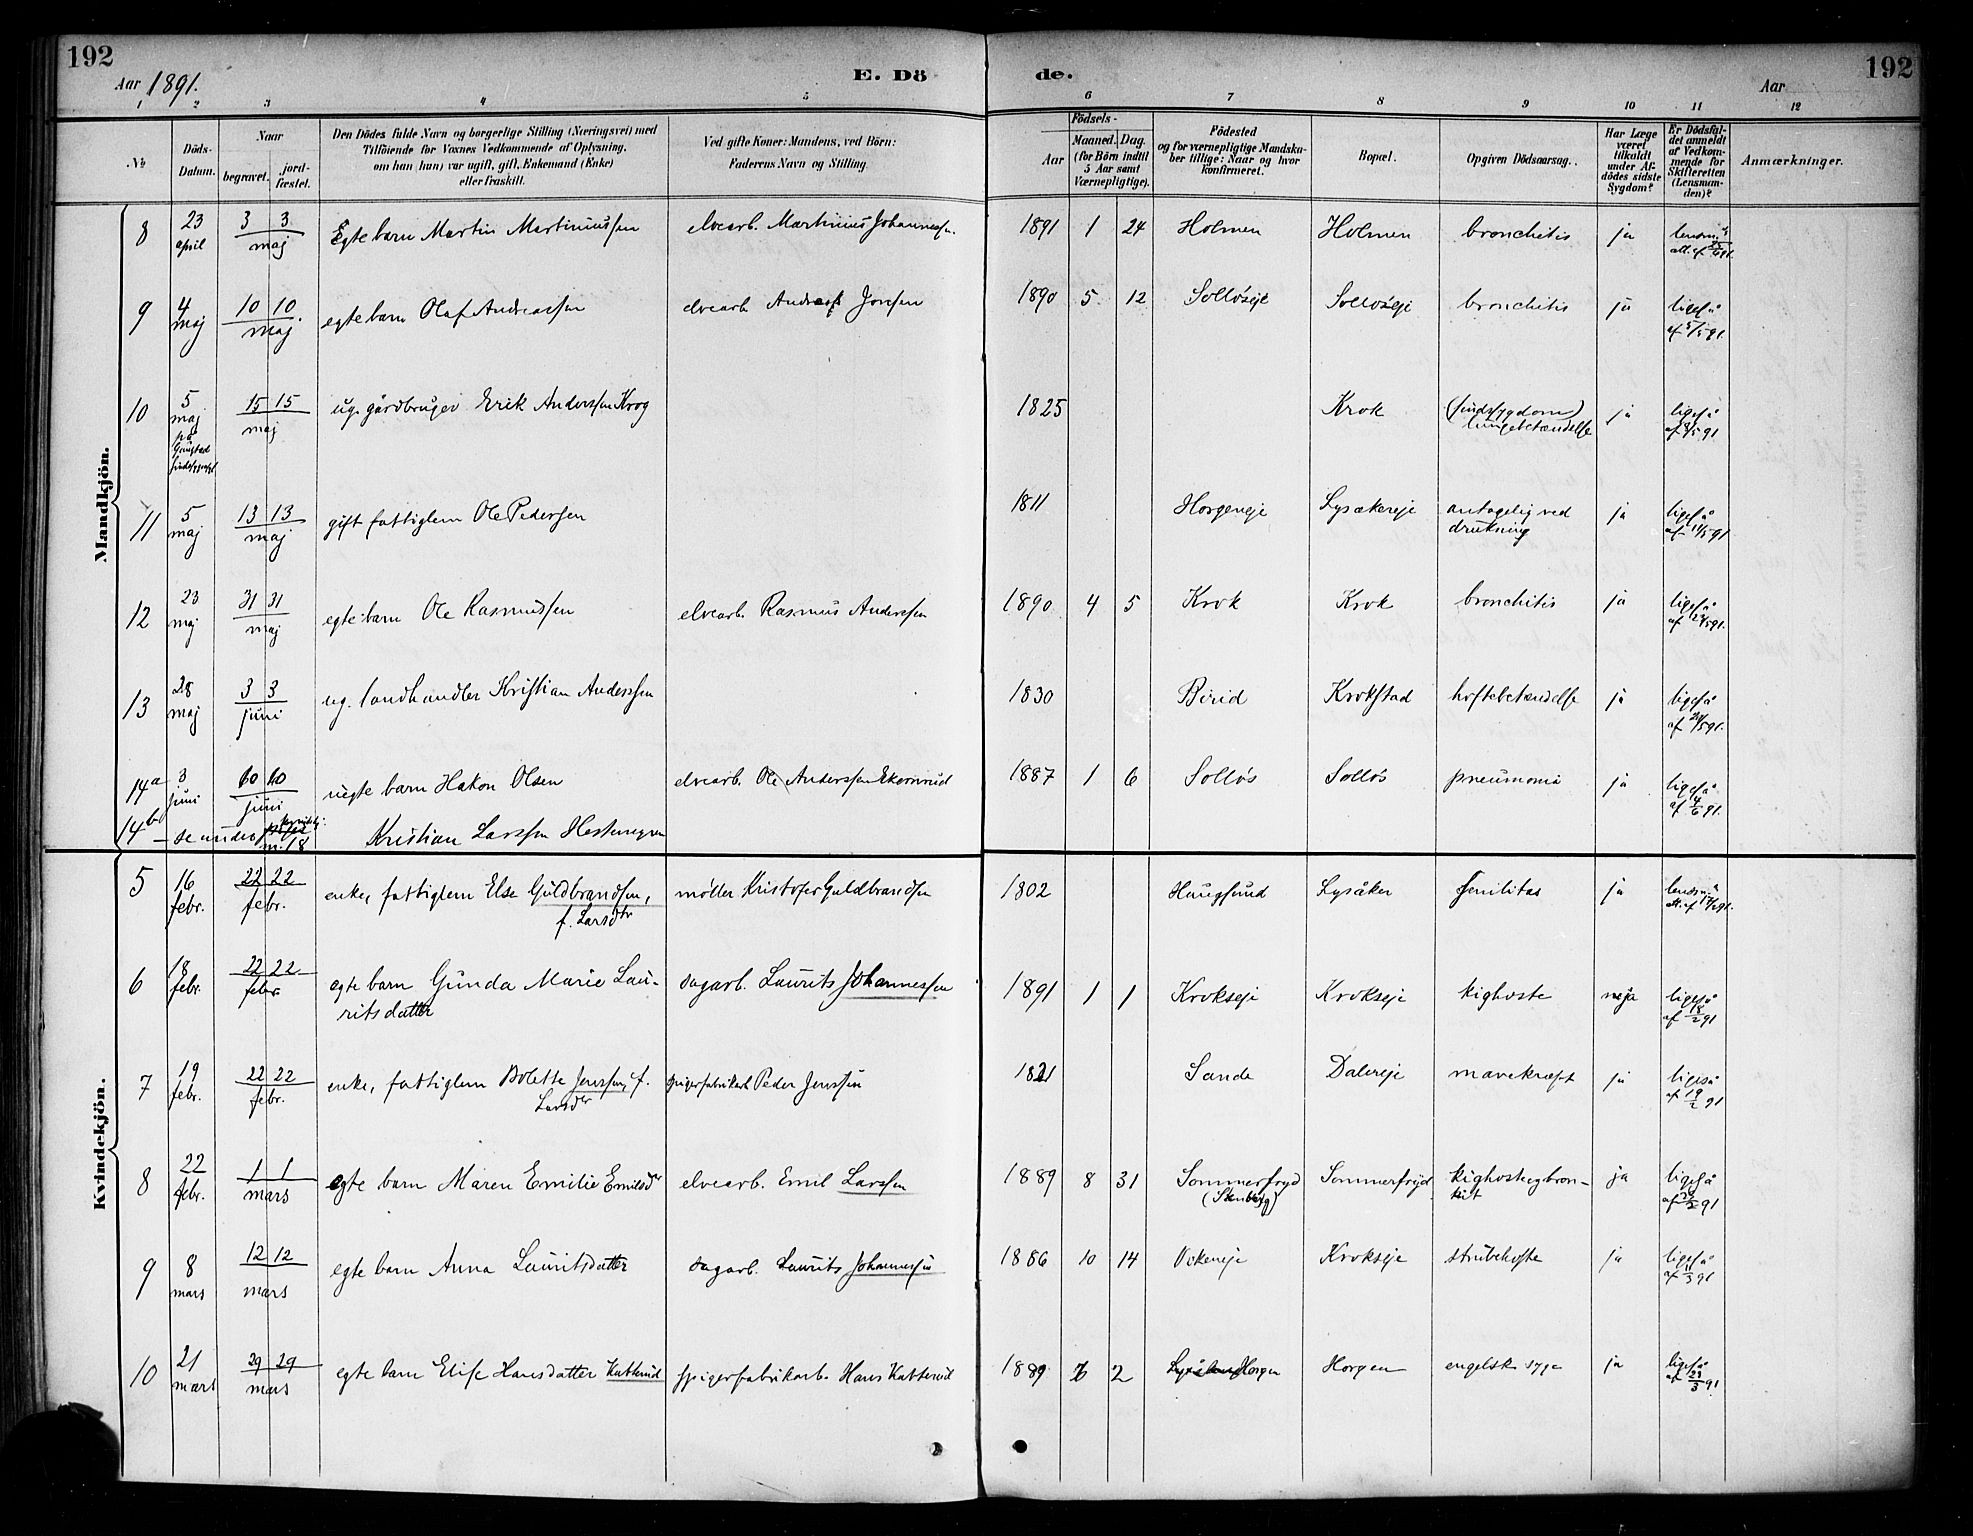 192
Aar 1891.
E. Dö
de.
Aar
192
1 2 3 4 5 6 7 8 9 10 11 12
№
Döds-
Datum.
Naar
begravet.
jord-
fæstet.
Den Dödes fulde Navn og borgerlige Stilling (Næringsvei) med
Tilföiende for Voxnes Vedkommende af Oplysning,
om han (hun) var ugift, gift, Enkemand (Enke)
eller fraskilt.
Ved gifte Koner: Mandens, ved Börn:
Faderens Navn og Stilling.
Födsels-
Aar
Maaned. Dag.
(for Börn indtil
5 Aar samt
Værnepligtige).
Födested
og for værnepligtige Mandska-
ber tillige: Naar og hvor
konfirmeret.
Bopæl.
Opgiven Dödsaarsag.
Har Læge
været
tilkaldt
under Af-
dödes sidste
Sygdom?
Er Dödsfal-
det anmeldt
af Vedkom-
mende for
Skifteretten
(Lensman-
den)?
Anmærkninger.
Mandkjön.
8 23 april 3 3 maj Egte barn Martin Martiniussen elvearb. Martinius Johannessen. 1891 1 24 Holmen Holmen bronchitis ja
9 4 maj 10 10 maj. egte barn Olaf Andreassen elvearb Andreas Jonsen 1890 5 12 Solløseje Solløseje bronchitis ja ligeså af 5/5 91.
10 5 maj på Gaustad 15 15 maj ug. gårdbruger Erik Anderssen Krog 1825 Krok (sindssygdom) lungebetændelse ja ligeså af 8/5 91
11 5 maj 13 13 maj gift fattiglem Ole Pederssen 1811 Horgeneje Lysakereje antagelig ved drukning ja ligeså af 11/5 91
12 23 maj 31 31 maj egte barn Ole Rasmussen elvearb. Rasmus Anderssen 1890 4 5 Krok Krok bronchitis ja ligeså
13 28 maj 3 3 juni ug. landhandler Kristian Anderssen 1830 Birid Krokstad hoftebetændelse ja ligeså
14a 3 juni 10 10 juni uegte barn Hakon Olsen elvearb. Ole Anderssen Ekornrud 1887 1 6 Solløs Solløs pneumonia ja ligeså af 4/6 91.
14b – se under n. 18 Kristian Larssen
Kvindekjön.
5 16 febr. 22 22 febr. enke, fattiglem Else Guldbrandsen, f. Larsdtr møller Kristofer Guldbrandsen 1802 Haugsund Lysåker senilitas ja
6 18 febr. 22 22 febr. egte barn Gunda Marie Lau-
ritsdatter sagarb. Laurits Johannessen 1891 1 1 Krokseje Krokseje kighoste ja ligeså af 18/2 91
7 19 febr. 22 22 febr. enke, fattiglem Bolette Jenssen, f. Larsdtr spigerfabrikarb Peder Jenssen 1821 Sande Dalereje mavekræft ja ligeså af 19/2 91
8 22 febr. 1 1 mars egte barn Maren Emilie Emilsdtr elvearb. Emil Larssen 1889 8 31 Sommerfryd (Stenberg) Sommerfryd kighoste og bron-
kit ja ligeså
9 8 mars 12 12 mars egte barn Anna Lauritsdatter sagarb. Laurits Johannessen 1886 10 14 Vikeneje Krokseje strubehoste ja ligeså af 11/3 91
10 21 mars 29 29 mars egte barn Elise Hansdatter Katterud spigerfabrikarb. Hans Katterud 1889 2 Horgen Horgen engelsk syge ja ligeså af 23/3 91